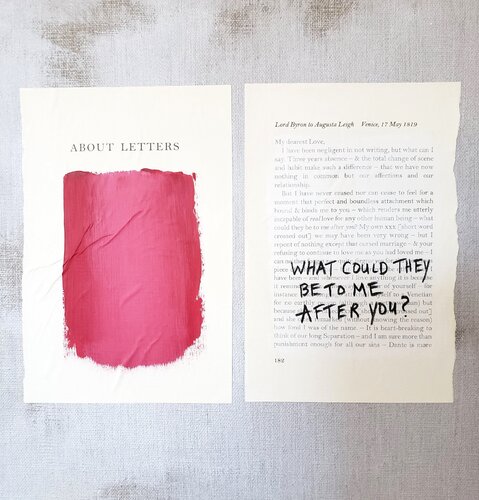 ABOUT LETTERS
Lord Byron to Augusta Leigh Venice, 17 May 1819
My dearest Love,
I have been negligent in not writing, but what can I
say. Three years absence – & the total change of scene
and habit make such a difference – that we have now
nothing in common but our affections and our
relationship.
But I have never ceased nor can cease to feel for a
moment that perfect and boundless attachment which
bound & binds me to you – which renders me utterly
incapable of real love for any other human being – what
could they be to me after you? My own xxx [short word
crossed out] we may have been very wrong – but I
repent of nothing except that cursed marriage – & your
refusing to continue to love me as you had loved me – I
WHAT COULD THEY
BE TO ME
AFTER YOU?
how fond I was of the name. – It is heart-breaking to
think of our long Separation – and I am sure more than
punishment enough for all our sins – Dante is more
182